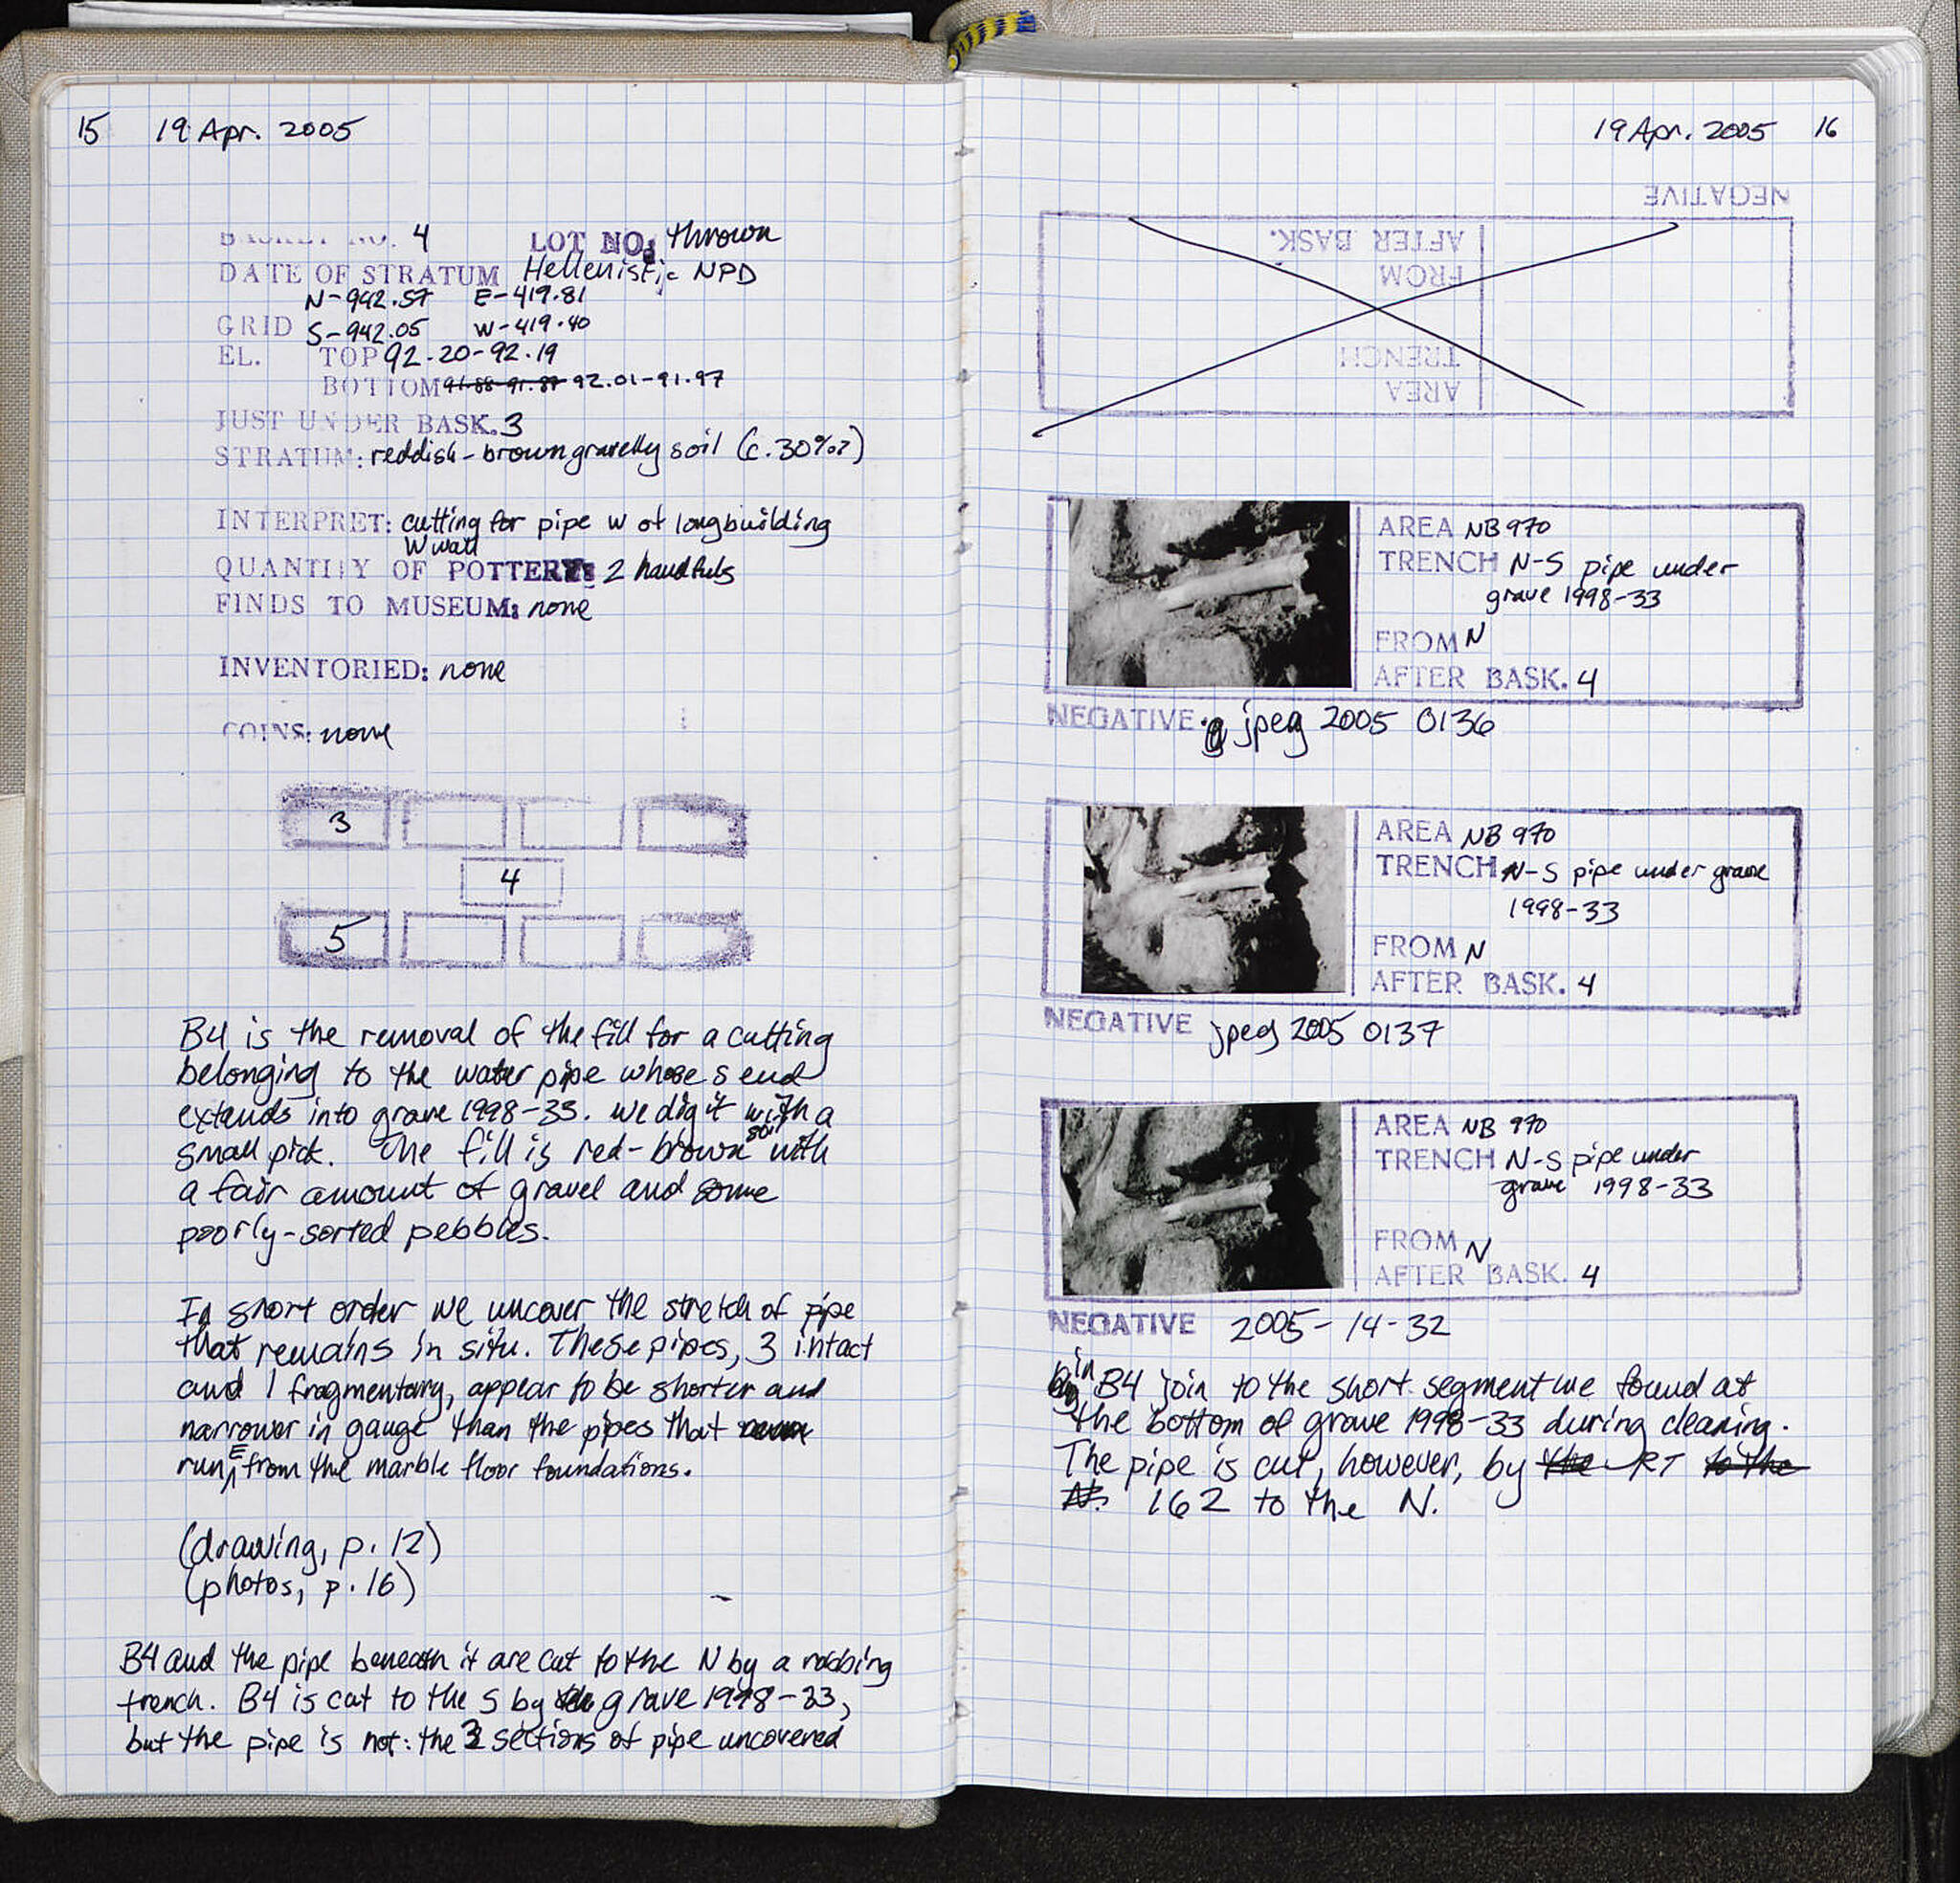 15 19 Apr. 2005
BASKET NO. 4 LOT NO: thrown
DATE OF STRATUM Hellenistic NPD
N-942.57 E-419.81
GRID S-942.05 W-419.40
EL. TOP 92.20-92.19
BOTTOM 91.88-91.87 92.01-91.97
JUST UNDER BASK. 3
STRATUM: reddish-brown gravelly soil (c. 30%?)
INTERPRET: cutting for pipe W of long building
W wall
QUANTITY OF POTTERY: 2 handfuls
FINDS TO MUSEUM: none
INVENTORIED: none
COINS: none
3
4
5
B4 is the removal of the fill for a cutting
belonging to the water pipe whose S end
extends into grave 1998-33. We dig it with a
small pick. The fill is red-brown soil with
a fair amount of gravel and some
poorly-sorted pebbles.
In short order we uncover the stretch of pipe
that remains in situ. These pipes, 3 intact
and 1 fragmentary, appear to be shorter and
narrower in gauge than the pipes that
run E from the marble floor foundations.
(drawing, p. 12)
(photos, p. 16)
B4 and the pipe beneath it are cut to the N by a robbing
trench. B4 is cut to the S by grave 1998-33,
but the pipe is not: the 3 sections of pipe uncovered
19 Apr. 2005 16
NEGATIVE
AFTER BASK.
FROM
TRENCH
AREA
AREA NB 970
TRENCH N-S pipe under
grave 1998-33
FROM N
AFTER BASK. 4
NEGATIVE jpeg 2005 0136
AREA NB 970
TRENCH N-S pipe under grave
1998-33
FROM N
AFTER BASK. 4
NEGATIVE jpeg 2005 0137
AREA NB 970
TRENCH N-S pipe under
grave 1998-33
FROM N
AFTER BASK. 4
NEGATIVE 2005-14-32
in B4 join to the short segment we found at
the bottom of grave 1998-33 during cleaning.
The pipe is cut, however, by the RT to the
N. 162 to the N.